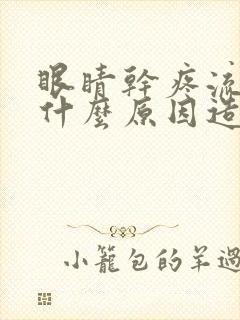 眼睛幹疼流
什麼原因造
小籠包的羊過